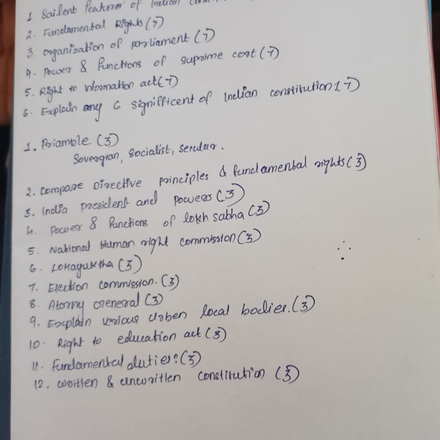 1 Sailent features of Indian
2. Fundamental Rights (7)
3. organisation of parliament (7)
4. Power & Functions of supreme cort (7)
5. Right to information act (7)
6. Explain any 6 significent of Indian constitution (7)
1. Priamble (3)
Sovereign, Socialist, Secular.
2. Compare Directive principles & fundamental rights (3)
3. India president and powers (3)
4. Power & Functions of lokh sabha (3)
5. National Human right commission (3)
6. Lokayuktha (3)
7. Election commission. (3)
8. Atorny General (3)
9. Explain various urben local bodies. (3)
10. Right to education act (3)
11. Fundamental duties: (3)
12. written & unwritten constitution (3)